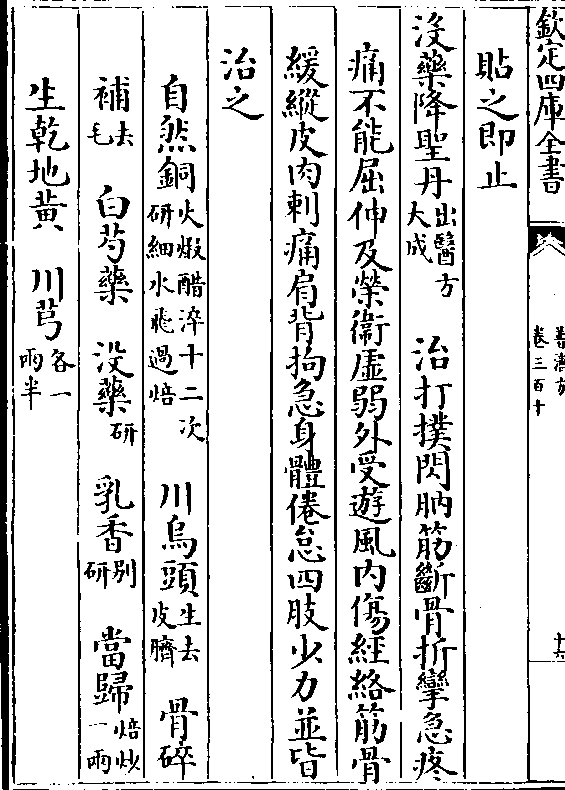 欽定四庫全書
普濟方
卷三百十
十六
貼之即止
沒藥降聖丹出醫方大成 治打撲閃肭筋斷骨折攣急疼
痛不能屈伸及榮衞虛弱外受遊風内傷經絡筋骨
緩縱皮肉刺痛肩背拘急身體倦怠四肢少力並皆
治之
自然銅火煅醋淬十二次研細水飛過焙 川烏頭生去皮臍 骨碎
補去毛 白芍藥 沒藥研 乳香别研 當歸焙炒一兩
生乾地黄 川芎各一兩半